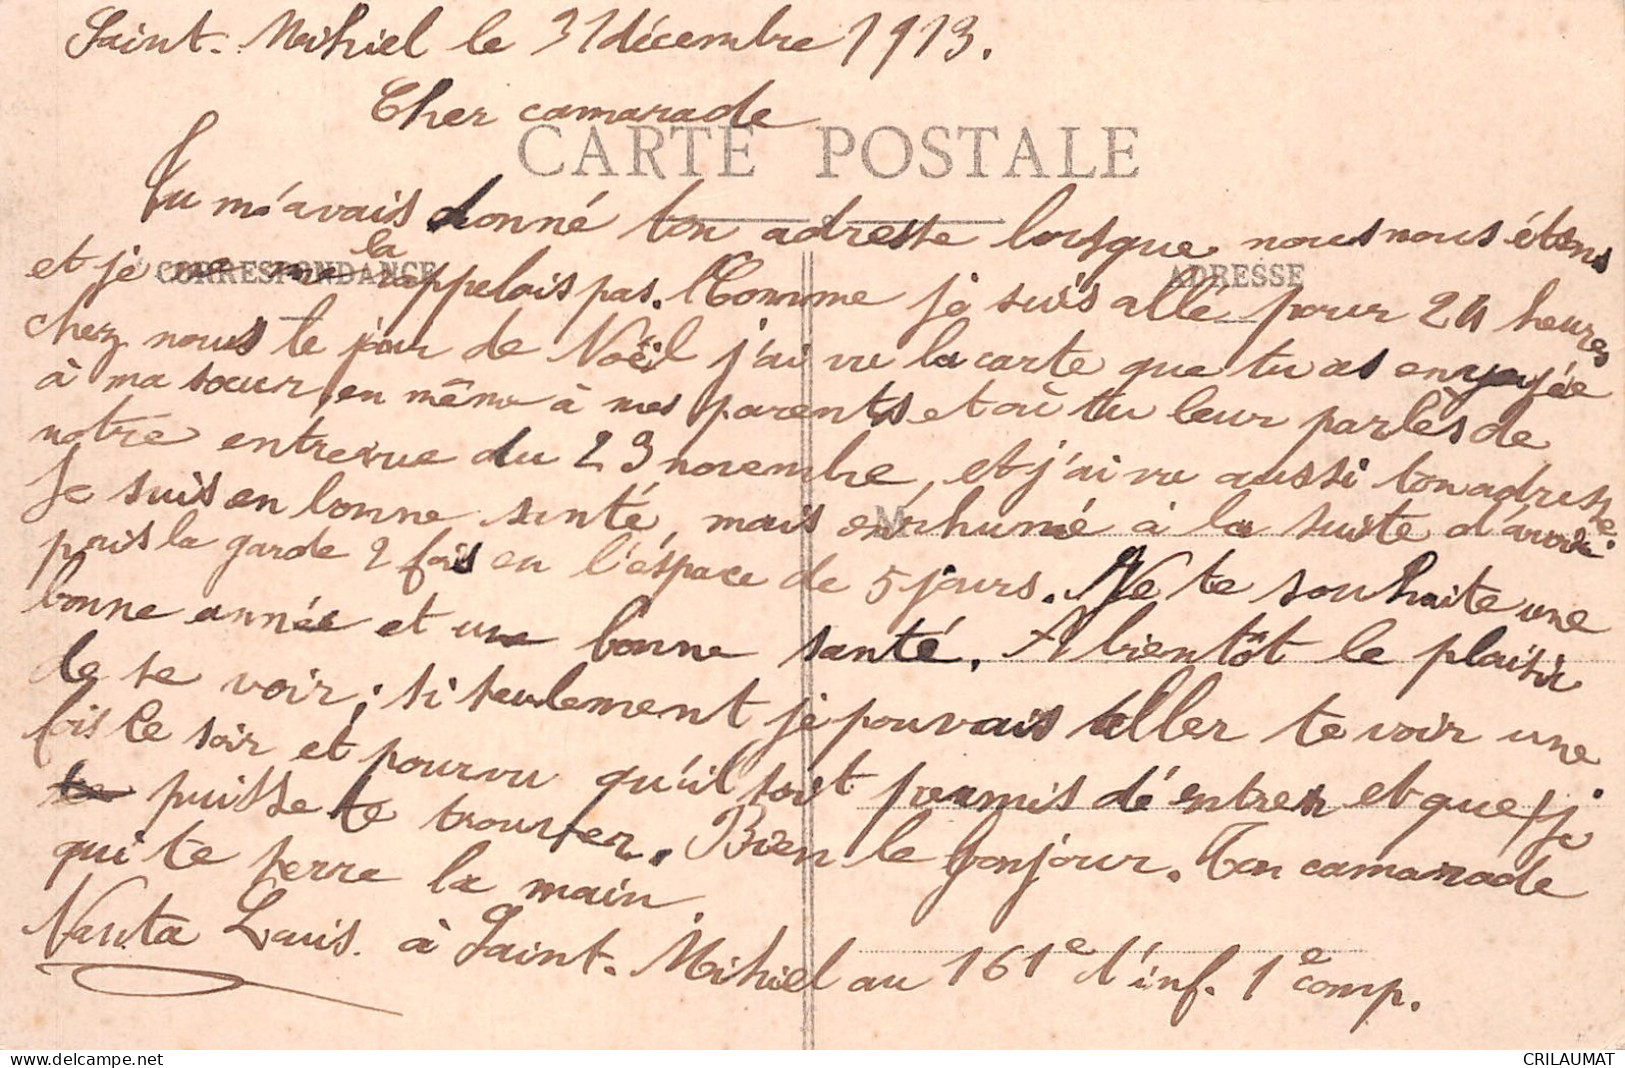 Saint-Mihiel le 31 décembre 1913.
Cher camarade
CARTE POSTALE
Tu m'avais donné ton adresse lorsque nous nous étions
CORRESPONDANCE
ADRESSE
et je ne me la appelais pas. Comme je suis allé pour 24 heures
chez nous le jour de Noël j'ai vu la carte que tu as envoyée
à ma soeur, en même à mes parents et où tu leur parlès de
notre entrevue du 23 novembre, et j'ai vu aussi ton adresse.
Je suis en bonne santé, mais enrhumé à la suite d'avoir
M
pris la garde 2 fois en l'éspace de 5 jours. Je te souhaite une
bonne année et une bonne santé. A bientôt le plaisir
de se voir; si seulement je pouvais aller te voir une
fois le soir et pourvu qu'il soit permis d'entrer et que je
te puisse te trouver. Bien le bonjour. Ton camarade
qui te serre la main.
Nauta Louis. à Saint-Mihiel au 161e d'inf. 1e comp.
CRILAUMAT